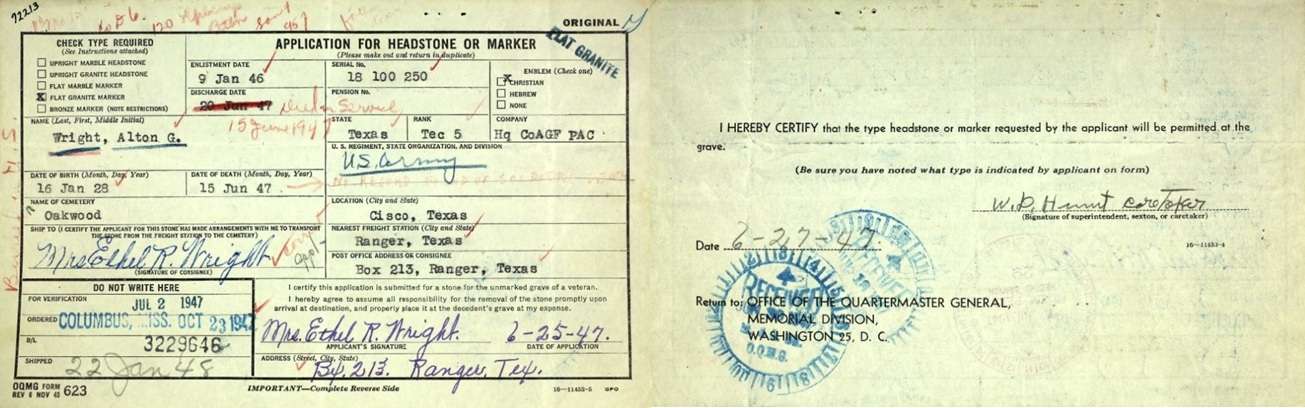 72213
ORIGINAL
CHECK TYPE REQUIRED
(See Instructions attached)
UPRIGHT MARBLE HEADSTONE
UPRIGHT GRANITE HEADSTONE
FLAT MARBLE MARKER
X FLAT GRANITE MARKER
BRONZE MARKER (NOTE RESTRICTIONS)
APPLICATION FOR HEADSTONE OR MARKER
(Please make out and return in duplicate)
FLAT GRANITE
ENLISTMENT DATE
9 Jan 46
SERIAL No.
18 100 250
EMBLEM (Check one)
X CHRISTIAN
HEBREW
NONE
DISCHARGE DATE
20 Jun 47
Died in Service
15 June 1947
PENSION No.
NAME (Last, First, Middle Initial)
Wright, Alton G.
STATE
Texas
RANK
Tec 5
COMPANY
Hq CoAGF PAC
U. S. REGIMENT, STATE ORGANIZATION, AND DIVISION
U.S. Army
DATE OF BIRTH (Month, Day, Year)
16 Jan 28
DATE OF DEATH (Month, Day, Year)
15 Jun 47
NAME OF CEMETERY
Oakwood
LOCATION (City and State)
Cisco, Texas
SHIP TO (I CERTIFY THE APPLICANT FOR THIS STONE HAS MADE ARRANGEMENTS WITH ME TO TRANSPORT
THE STONE FROM THE FREIGHT STATION TO THE CEMETERY)
Mrs Ethel R. Wright
(SIGNATURE OF CONSIGNEE)
NEAREST FREIGHT STATION (City and State)
Ranger, Texas
POST OFFICE ADDRESS OR CONSIGNEE
Box 213, Ranger, Texas
DO NOT WRITE HERE
FOR VERIFICATION
JUL 2 1947
ORDERED
COLUMBUS, MISS. OCT 23 1947
B/L
3229646
SHIPPED
22 Jan 48
I certify this application is submitted for a stone for the unmarked grave of a veteran.
I hereby agree to assume all responsibility for the removal of the stone promptly upon
arrival at destination, and properly place it at the decedent's grave at my expense.
Mrs. Ethel R. Wright. 6-25-47.
APPLICANT'S SIGNATURE DATE OF APPLICATION
ADDRESS (Street, City, State)
Bx. 213. Ranger, Tex.
OQMG FORM 623
REV 6 NOV 45
IMPORTANT—Complete Reverse Side
16—11453-5 GPO
I HEREBY CERTIFY that the type headstone or marker requested by the applicant will be permitted at the
grave.
(Be sure you have noted what type is indicated by applicant on form)
W. D. Hunt caretaker
(Signature of superintendent, sexton, or caretaker)
Date 6-27-47.
16—11453-4
RECEIVED
O.Q.M.G.
Return to: OFFICE OF THE QUARTERMASTER GENERAL,
MEMORIAL DIVISION,
WASHINGTON 25, D. C.